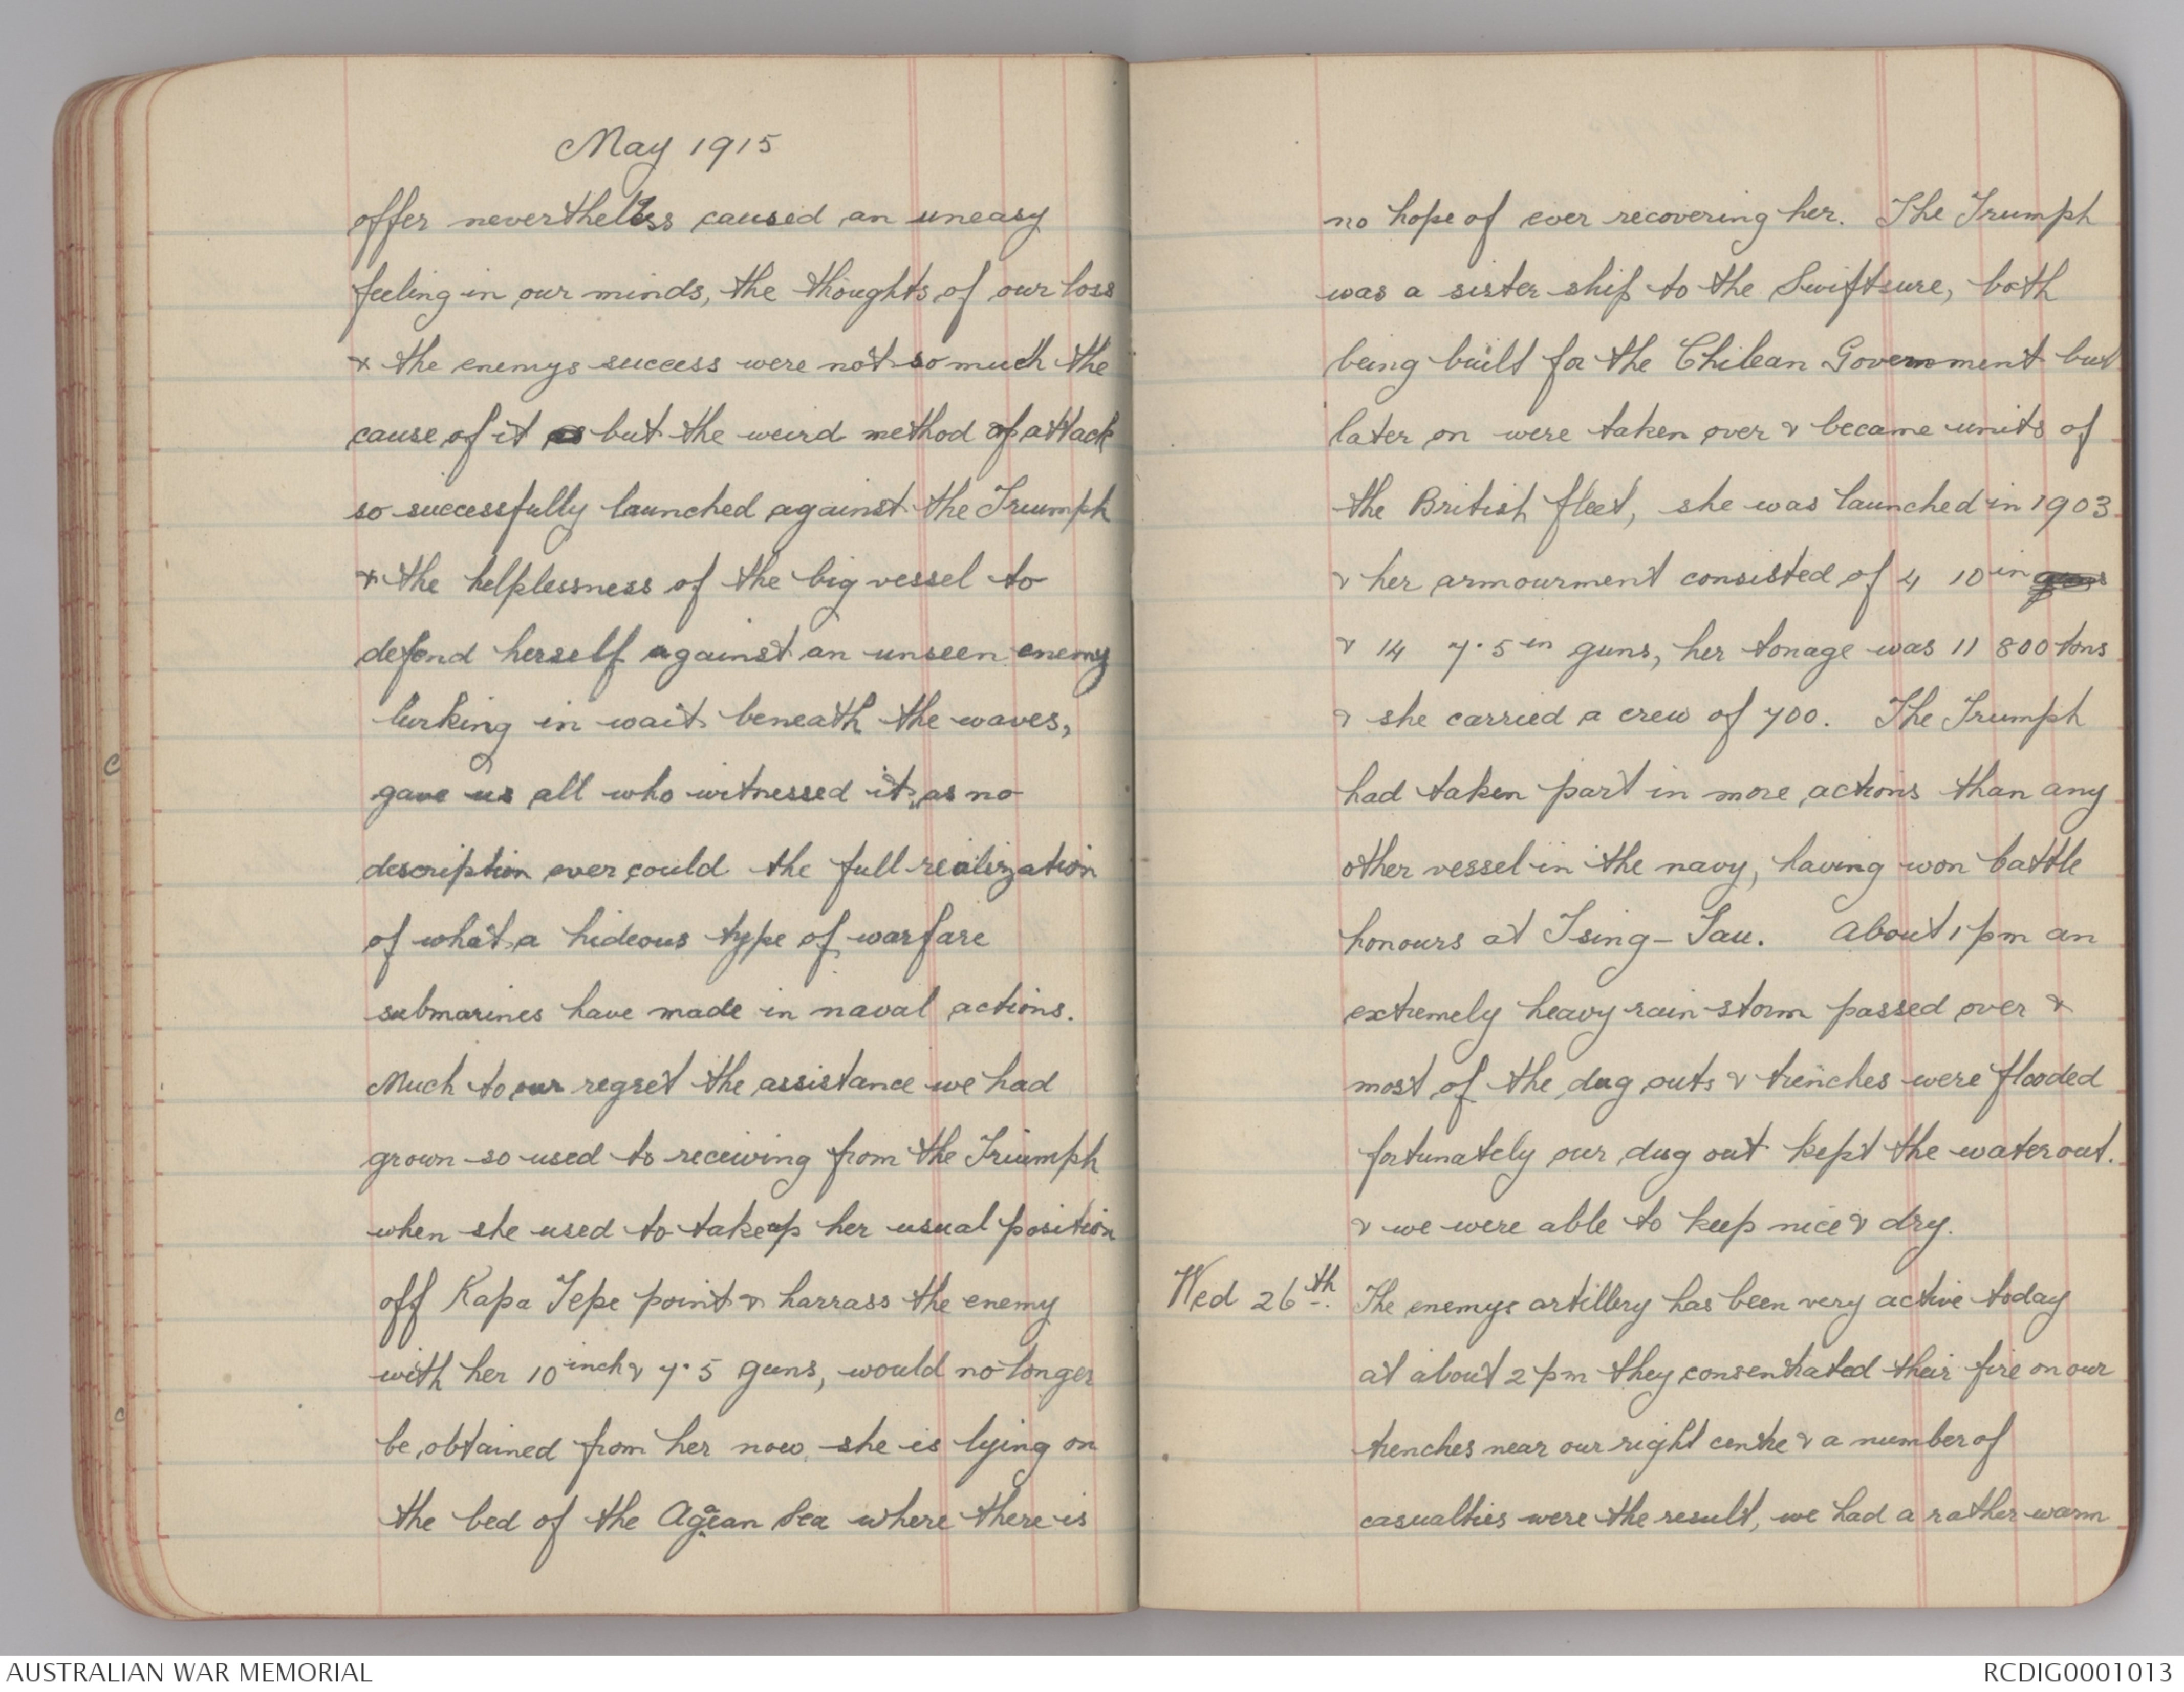 May 1915
offer nevertheless caused an uneasy
feeling in our minds, the thoughts of our loss
& the enemys success were not so much the
cause of it but the weird method of attack
so successfully launched against the Triumph
& the helplessness of the big vessel to
defend herself against an unseen enemy
lurking in wait beneath the waves,
gave us all who witnessed it, as no
description ever could the full realization
of what a hideous type of warfare
submarines have made in naval actions.
Much to our regret the assistance we had
grown so used to receiving from the Triumph
when she used to take up her usual position
off Kapa Tepe point & harrass the enemy
with her 10 inch & 7.5 guns, would no longer
be obtained from her now, she is lying on
the bed of the Agean Sea where there is
no hope of ever recovering her. The Trumph
was a sister ship to the Swiftsure, both
being built for the Chilean Government but
later on were taken over & became units of
the British fleet, she was launched in 1903
& her armourment consisted of 4 10 in guns
& 14 7.5 in guns, her tonage was 11 800 tons
& she carried a crew of 700. The Trumph
had taken part in more actions than any
other vessel in the navy, having won battle
honours at Tsing-Tau. About 1 pm an
extremely heavy rain storm passed over &
most of the dug outs & trenches were flooded
fortunately our dug out kept the water out.
& we were able to keep nice & dry.
Wed 26th. The enemys artillery has been very active today
at about 2 pm they consentrated their fire on our
trenches near our right centre & a number of
casualties were the result, we had a rather warm
C
C
AUSTRALIAN WAR MEMORIAL
RCDIG0001013